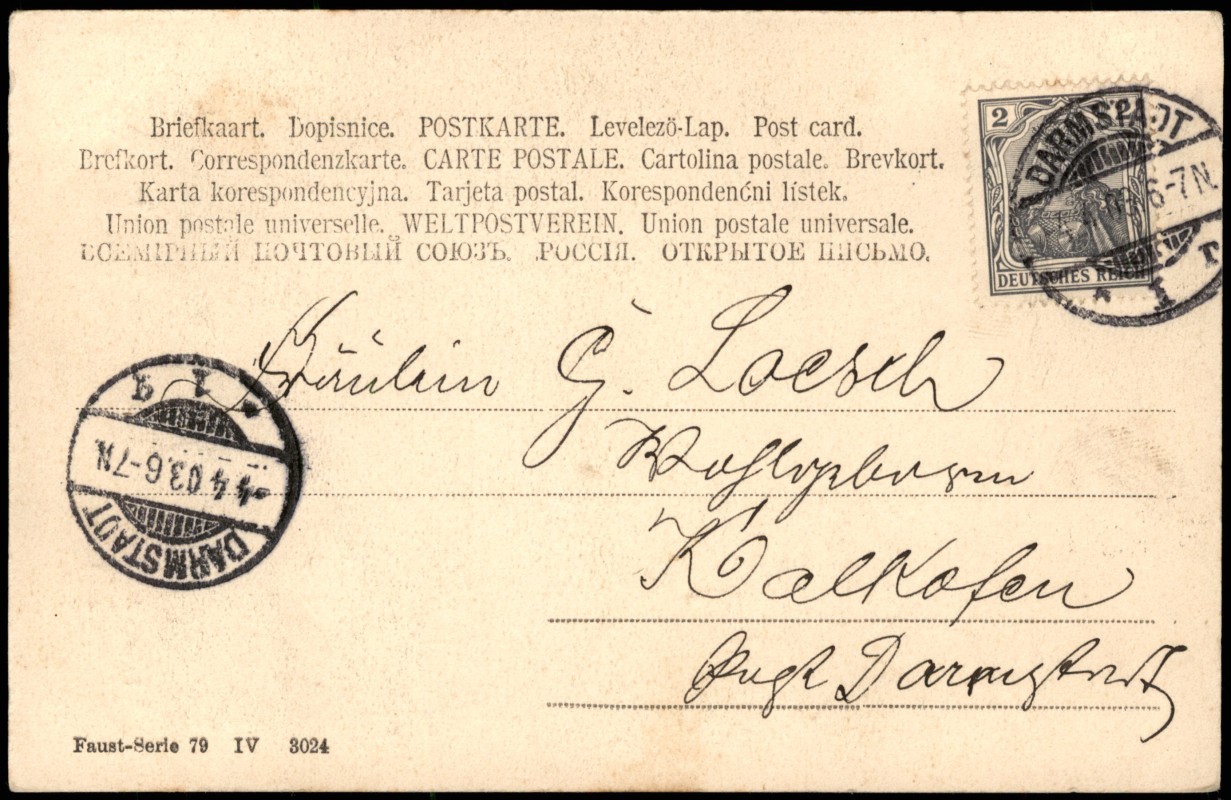 Briefkaart. Dopisnice. POSTKARTE. Levelezö-Lap. Post card.
Brefkort. Correspondenzkarte. CARTE POSTALE. Cartolina postale. Brevkort.
Karta korespondencyjna. Tarjeta postal. Korespondenćni lístek.
Union postale universelle. WELTPOSTVEREIN. Union postale universale.
ВСЕМІРНЫЙ ПОЧТОВЫЙ СОЮЗЪ. РОССІЯ. ОТКРЫТОЕ ПИСЬМО.
2
DEUTSCHES REICH
DARMSTADT
03.6-7N.
Fräulein G. Loesch
Wohlgeboren
Kalkofen
Darmstadt
DARMSTADT
4.4.03.6-7N.
Faust-Serie 79 IV 3024